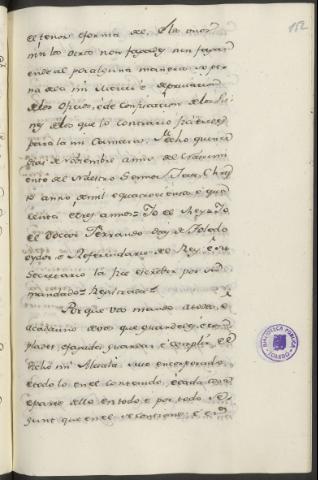 152
el tenor e forma de ella e los unos
nin los otros non fagades nin fagan
ende al por alguna manera so pena
de la mi merced e de privacion
de los Oficios, e de Confiscacion de los bienes
de los que lo contrario ficieredes
para la mi Camara. fecho quince
dias de Noviembre año del Nacimiento
del Nuestro Señor Jesu Christo
año de mil e quatrocientos e quarenta
e tres años = Yo el Rey = Yo
el Doctor Fernando Diaz de Toledo
oydor e Referendario del Rey, e su
Secretario la fice escribir por su
mandado = Registrada =
Porque vos mando a todos, e
a cada uno de vos que guardedes, e cumplades
e fagades guardar e cumplir el
dicho mi Alvala suso encorporado
e todo lo en el contenido, e cada cosa
e parte dello en todo e por todo segunt
que en el se contiene e
BIBLIOTECA PUBLICA
TOLEDO